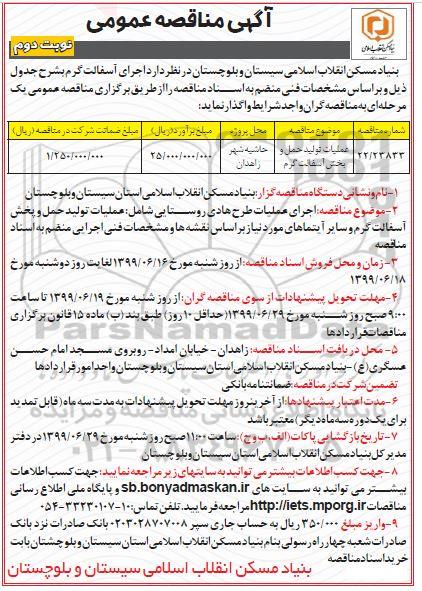 آگهی مناقصه عمومی
نوبت دوم
بنیاد مسکن انقلاب اسلامی سیستان و بلوچستان در نظر دارد اجرای آسفالت گرم بشرح جدول
ذیل و بر اساس مشخصات فنی منضم به اسناد مناقصه را از طریق برگزاری مناقصه عمومی یک
مرحله‌ای به مناقصه گران واجد شرایط واگذار نماید:
شماره مناقصه موضوع مناقصه محل پروژه مبلغ برآورد (ریال) مبلغ ضمانت شرکت در مناقصه (ریال)
۲۲/۲۳۸۳۳ عملیات تولید حمل و پخش آسفالت گرم حاشیه شهر زاهدان ۲۵/۰۰۰/۰۰۰/۰۰۰ ۱/۲۵۰/۰۰۰/۰۰۰
۱- نام و نشانی دستگاه مناقصه گزار: بنیاد مسکن انقلاب اسلامی استان سیستان و بلوچستان
۲- موضوع مناقصه: اجرای عملیات طرح هادی روستایی شامل: عملیات تولید حمل و پخش
آسفالت گرم و سایر آیتمهای مورد نیاز بر اساس نقشه ها و مشخصات فنی اجرایی منضم به اسناد
مناقصه
۳- زمان و محل فروش اسناد مناقصه: از روز شنبه مورخ ۱۳۹۹/۰۶/۱۶ لغایت روز دوشنبه مورخ
۱۳۹۹/۰۶/۱۸
۴- مهلت تحویل پیشنهادات از سوی مناقصه گران: از روز شنبه مورخ ۱۳۹۹/۰۶/۱۹ تا ساعت
۹:۰۰ صبح روز شنبه مورخ ۱۳۹۹/۰۶/۲۹ (حداقل ۱۰ روز) طبق بند (ب) ماده ۱۵ قانون برگزاری
مناقصات قراردادها
۵- محل دریافت اسناد مناقصه: زاهدان - خیابان امداد - روبروی مسجد امام حسن
عسگری (ع) - بنیاد مسکن انقلاب اسلامی استان سیستان و بلوچستان واحد امور قراردادها
تضمین شرکت در مناقصه: ضمانتنامه بانکی
۶- مدت اعتبار پیشنهادها: از آخرین روز مهلت تحویل پیشنهادات به مدت سه ماه (قابل تمدید
برای یک دوره سه ماه دیگر) معتبر باشد
۷- تاریخ بازگشایی پاکات (الف، ب و ج): ساعت ۱۱:۰۰ صبح روز شنبه مورخ ۱۳۹۹/۰۶/۲۹ در دفتر
مدیر کل بنیاد مسکن انقلاب اسلامی استان سیستان و بلوچستان
۸- جهت کسب اطلاعات بیشتر می توانید به سایتهای زیر مراجعه نمایید: جهت کسب اطلاعات
بیشتر می توانید به سایت های sb.bonyadmaskan.ir و پایگاه ملی اطلاع رسانی
مناقصات http://iets.mporg.ir مراجعه فرمایید. تلفن تماس: ۱۰-۳۳۲۳۰۱۰۷-۰۵۴
۹- واریز مبلغ ۳۵۰/۰۰۰ ریال به حساب جاری سپهر ۰۲۰۳۰۲۸۷۰۷۰۰۸ بانک صادرات نزد بانک
صادرات شعبه چهارراه رسولی بنام بنیاد مسکن انقلاب اسلامی استان سیستان و بلوچستان بابت
خرید اسناد مناقصه
بنیاد مسکن انقلاب اسلامی سیستان و بلوچستان